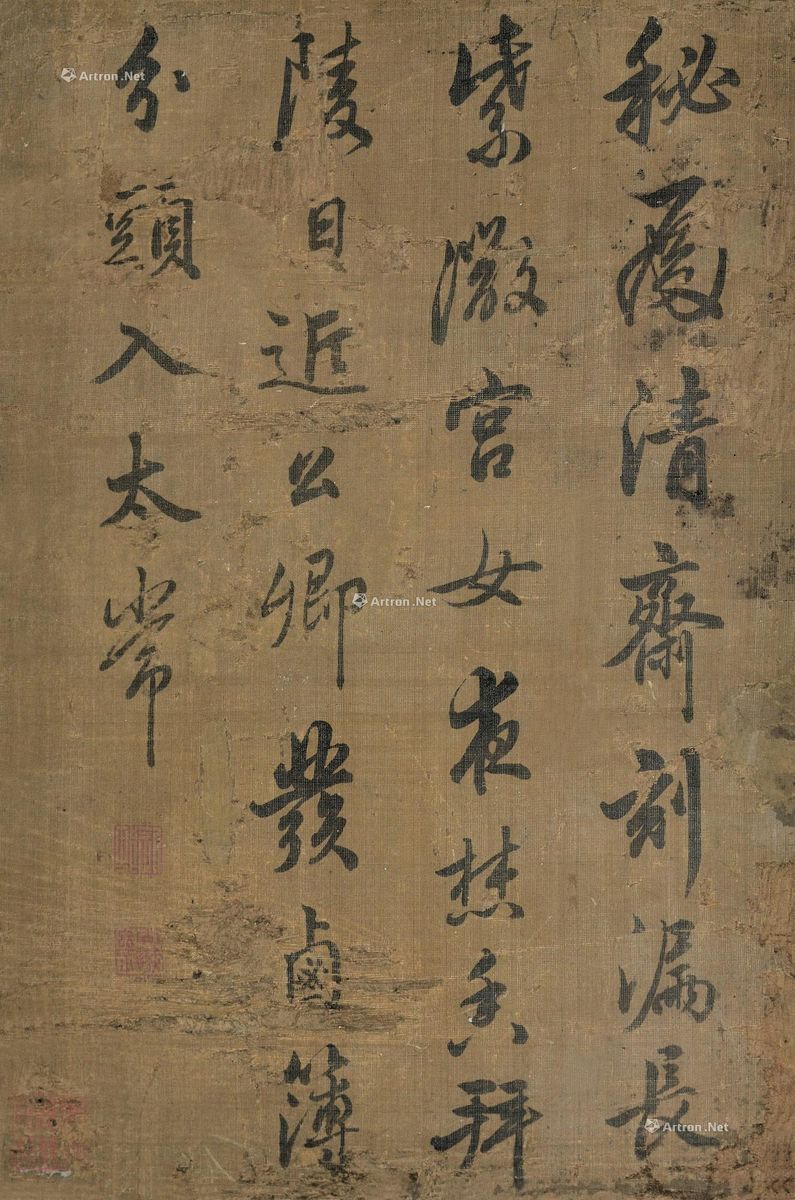 秘殿清齋刻漏長
紫微宮女夜焚香拜
陵日近公卿發鹵簿
分頭入太常
Artron.Net
Artron.Net
Artron.Net